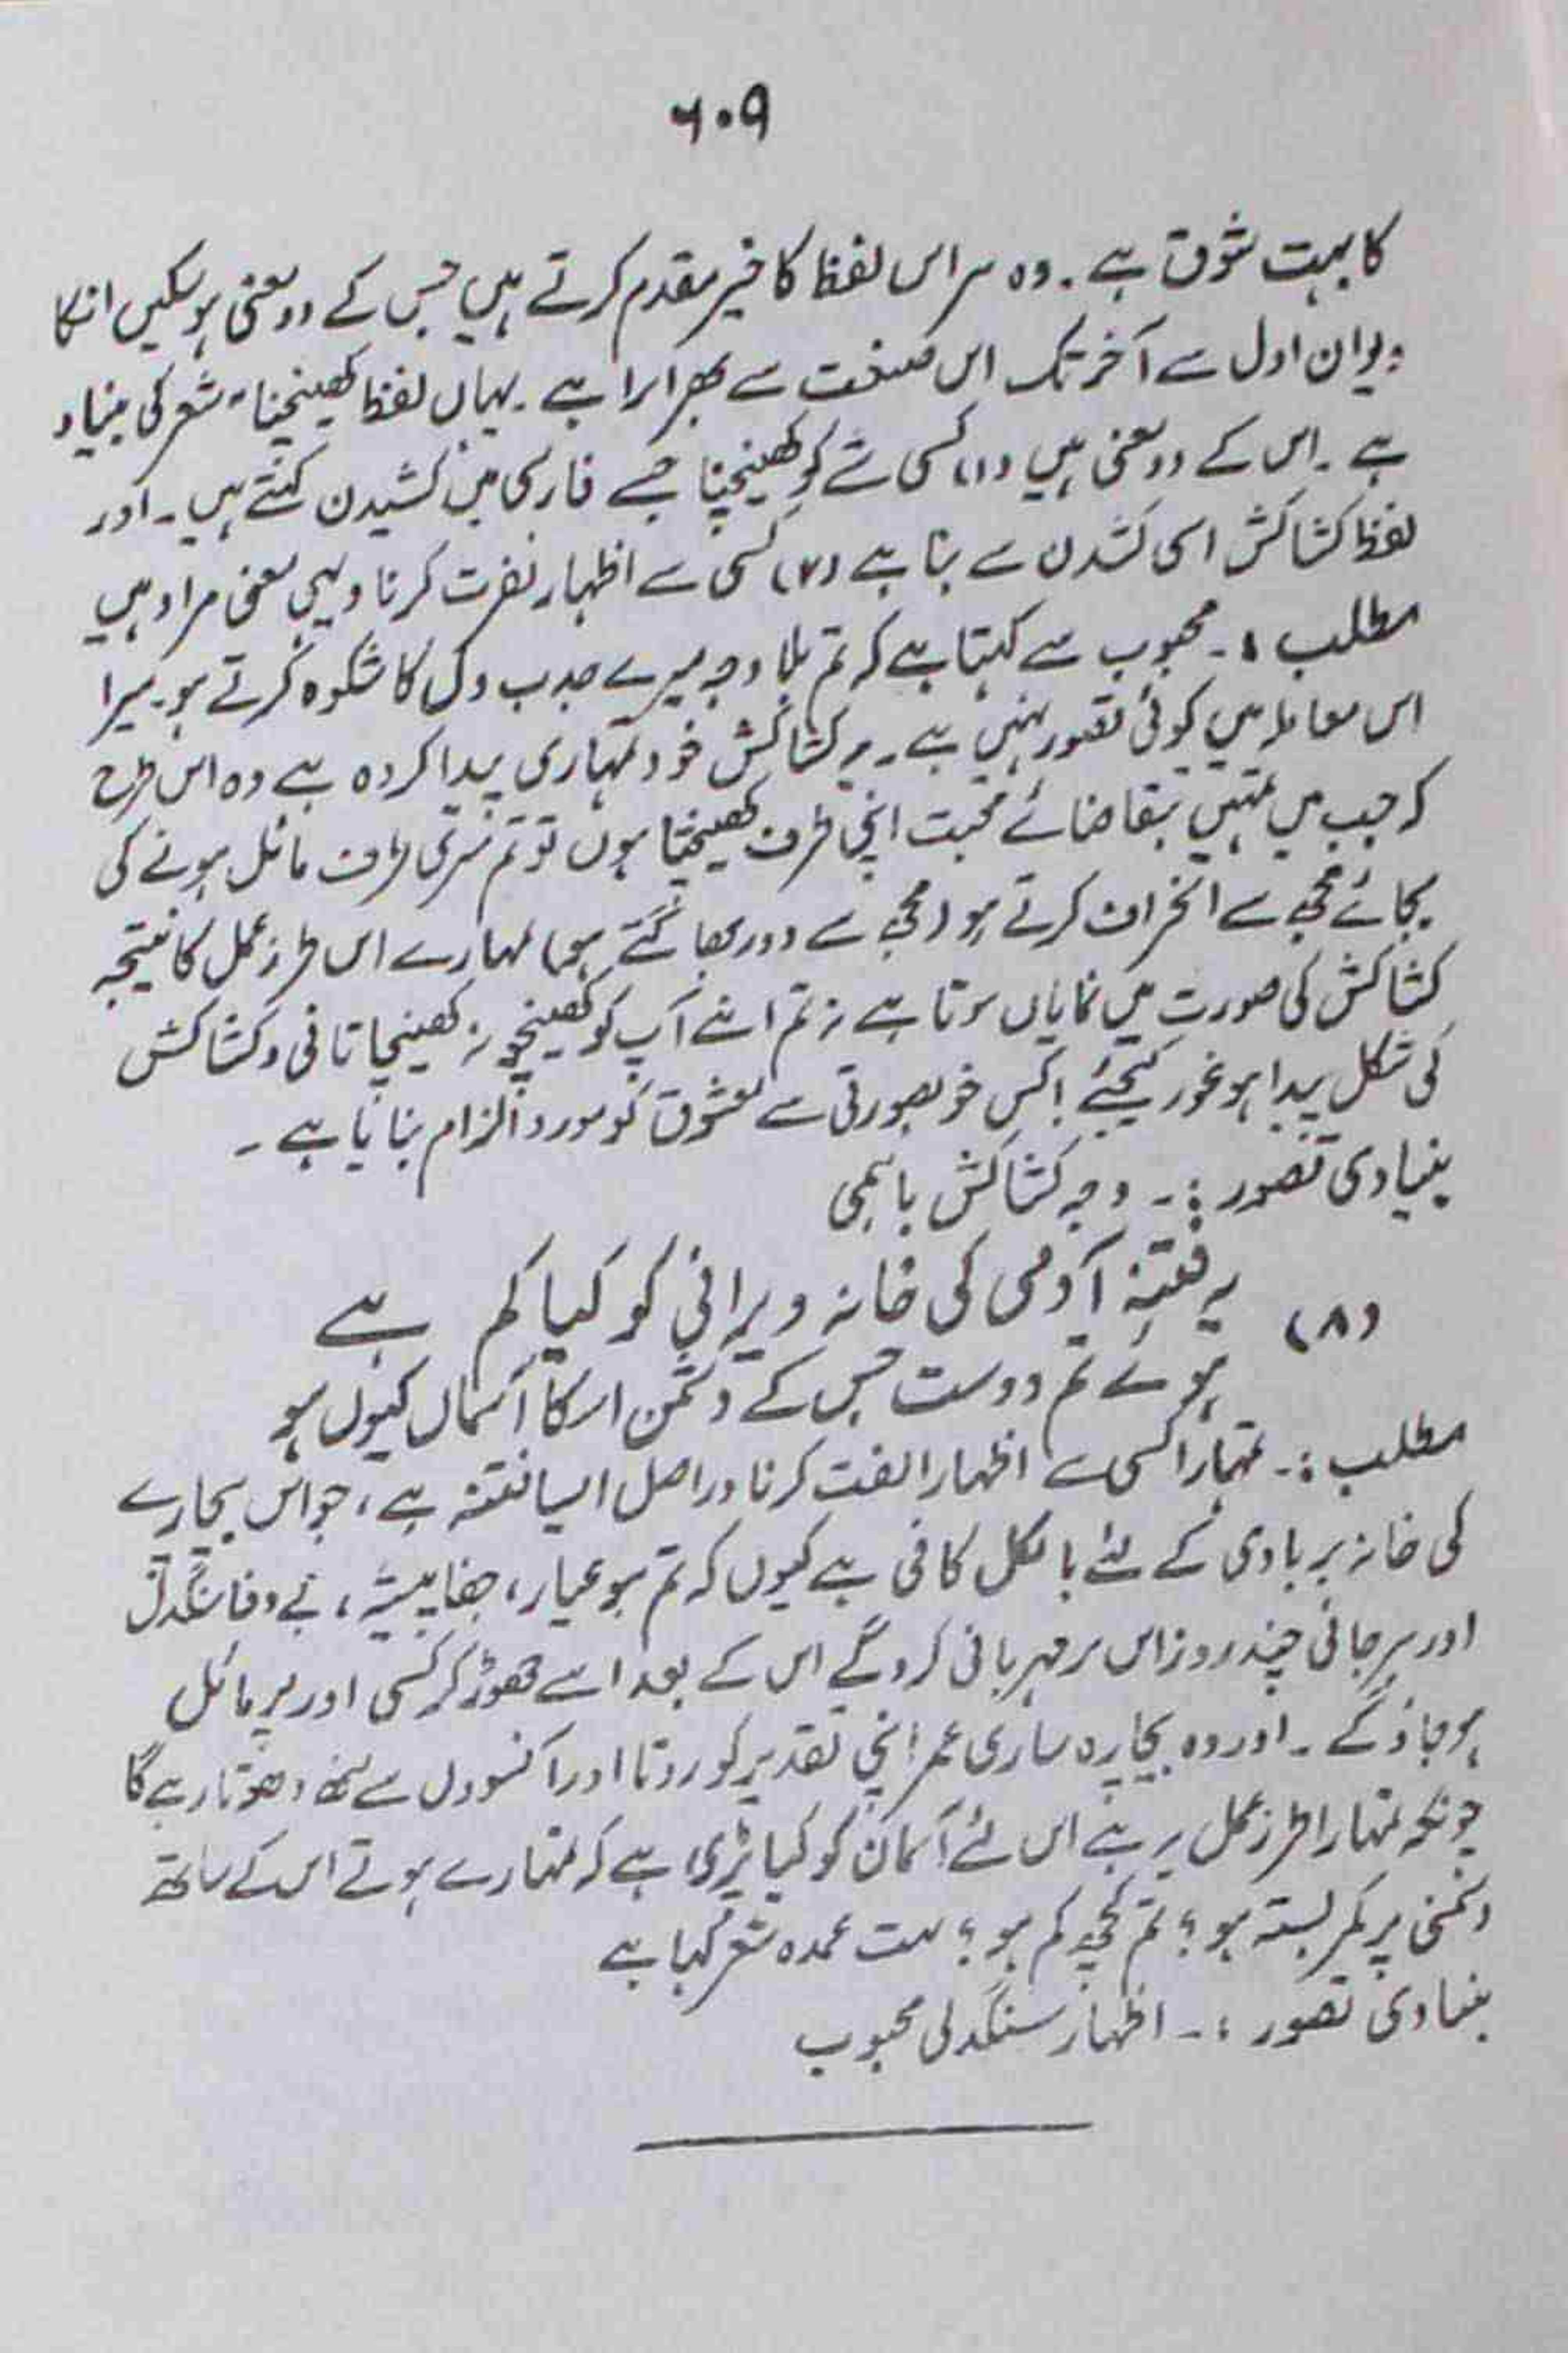 ۶۰۹
کا بہت شوق ہے ۔ وہ ہر اس لفظ کا خیر مقدم کرتے ہیں جس کے دو معنی ہو سکیں انکا
دیوان اول سے آخر تک اس صنعت سے بھرا پڑا ہے ۔ یہاں لفظ کھینچنا شعر کی بنیاد
ہے ۔ اس کے دو معنی ہیں (۱) کسی شے کو کھینچنا جسے فارسی میں کشیدن کہتے ہیں ۔ اور
لفظ کشاکش اسی کشدن سے بنا ہے (۲) کسی سے اظہار نفرت کرنا و یہی معنی مراد ہیں
مطلب :۔ محبوب سے کہتا ہے کہ تم بلا وجہ میرے جذب دل کا شکوہ کرتے ہو ۔ میرا
اس معاملہ میں کوئی قصور نہیں ہے ۔ یہ کشاکش خود تمہاری پیدا کردہ ہے وہ اس طرح
کہ جب میں تمہیں بتقاضائے محبت اپنی طرف کھینچتا ہوں تو تم میری طرف مائل ہونے کی
بجائے مجھ سے انحراف کرتے ہو (مجھ سے دور بھاگتے ہو) تمہارے اس طرز عمل کا نتیجہ
کشاکش کی صورت میں نمایاں ہوتا ہے نہ تم اپنے آپ کو کھینچو نہ کھینچا تانی و کشاکش
کی شکل پیدا ہو غور کیجئے ! کس خوبصورتی سے معشوق کو مورد الزام بنایا ہے ۔
بنیادی تصور :۔ وجہ کشاکش باہمی
(۸) یہ فتنہ آدمی کی خانہ ویرانی کو کیا کم ہے
ہوئے تم دوست جس کے دشمن اسکا آسماں کیوں ہو
مطلب :۔ تمہارا کسی سے اظہار الفت کرنا دراصل ایسا فتنہ ہے ، جو اس بیچارے
کی خانہ بربادی کے لئے بالکل کافی ہے کیوں کہ تم ہو عیار ، جفا پیشہ ، بے وفا سنگدل
اور ہرجائی چند روز اس پر مہربانی کروگے اس کے بعد اسے چھوڑ کر کسی اور پر مائل
ہو جاؤ گے ۔ اور وہ بیچارہ ساری عمر اپنی تقدیر کو روتا اور آنسوؤں سے منھ دھوتا رہے گا
چونکہ تمہارا طرز عمل یہ ہے اس لئے آسمان کو کیا پڑی ہے کہ تمہارے ہوتے اس کے ساتھ
دشمنی پر کمر بستہ ہو ؟ تم کچھ کم ہو ؟ بہت عمدہ شعر کہا ہے
بنیادی تصور :۔ اظہار سنگدلی محبوب